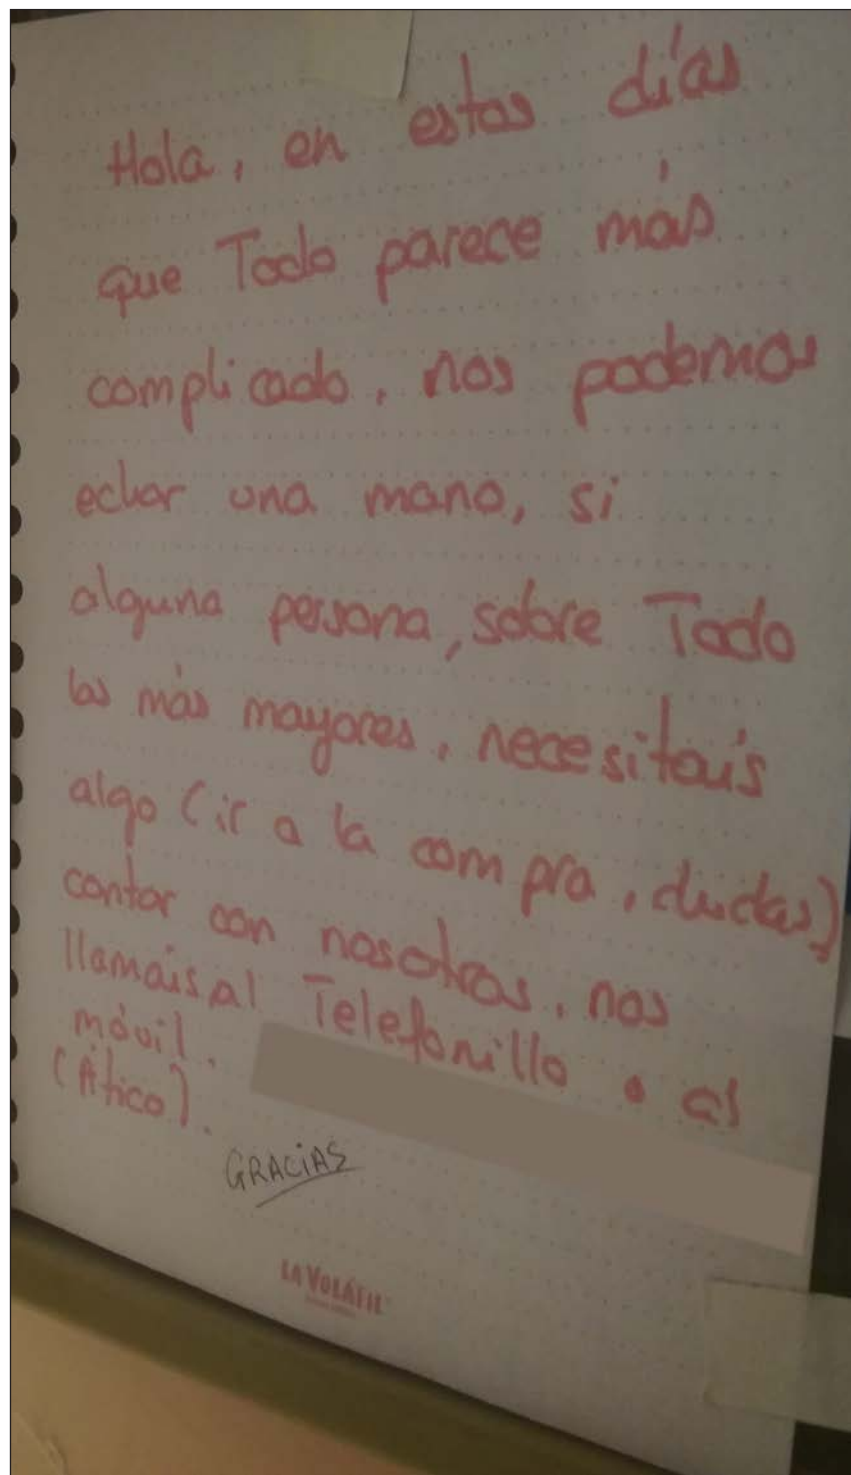 Hola, en estos días
que Todo parece más
complicado, nos podemos
echar una mano, si
alguna persona, sobre Todo
las más mayores, necesitáis
algo (ir a la compra, dudas)
contar con nosotros, nos
llamais al Telefonillo o al
móvil.
(Ático).
GRACIAS
LA VOLÁTIL